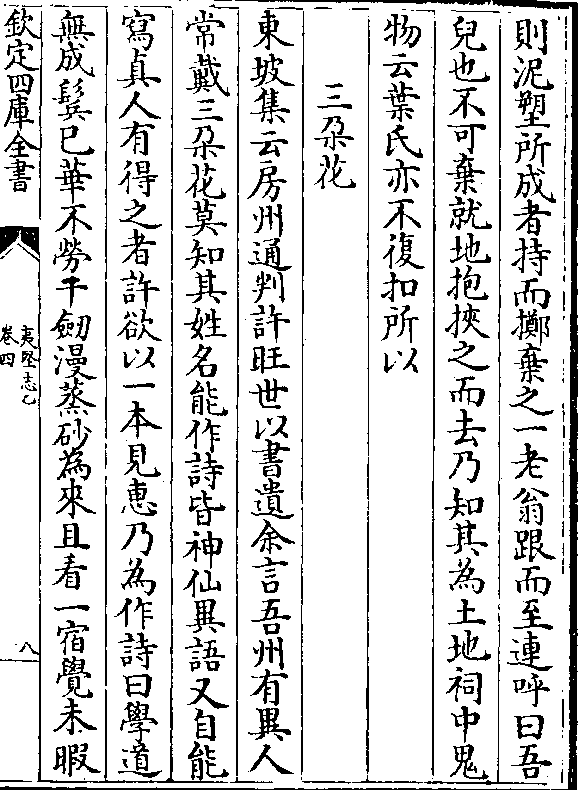 則泥塑所成者持而擲棄之一老翁跟而至連呼曰吾
兒也不可棄就地抱挾之而去乃知其為土地祠中鬼
物云葉氏亦不復扣所以
三朶花
東坡集云房州通判許旺世以書遺余言吾州有異人
常戴三朶花莫知其姓名能作詩皆神仙異語又自能
寫真人有得之者許欲以一本見惠乃為作詩曰學道
無成鬂已華不勞千劒漫蒸砂為來且看一宿覺未暇
欽定四庫全書
夷堅志乙
卷四
八